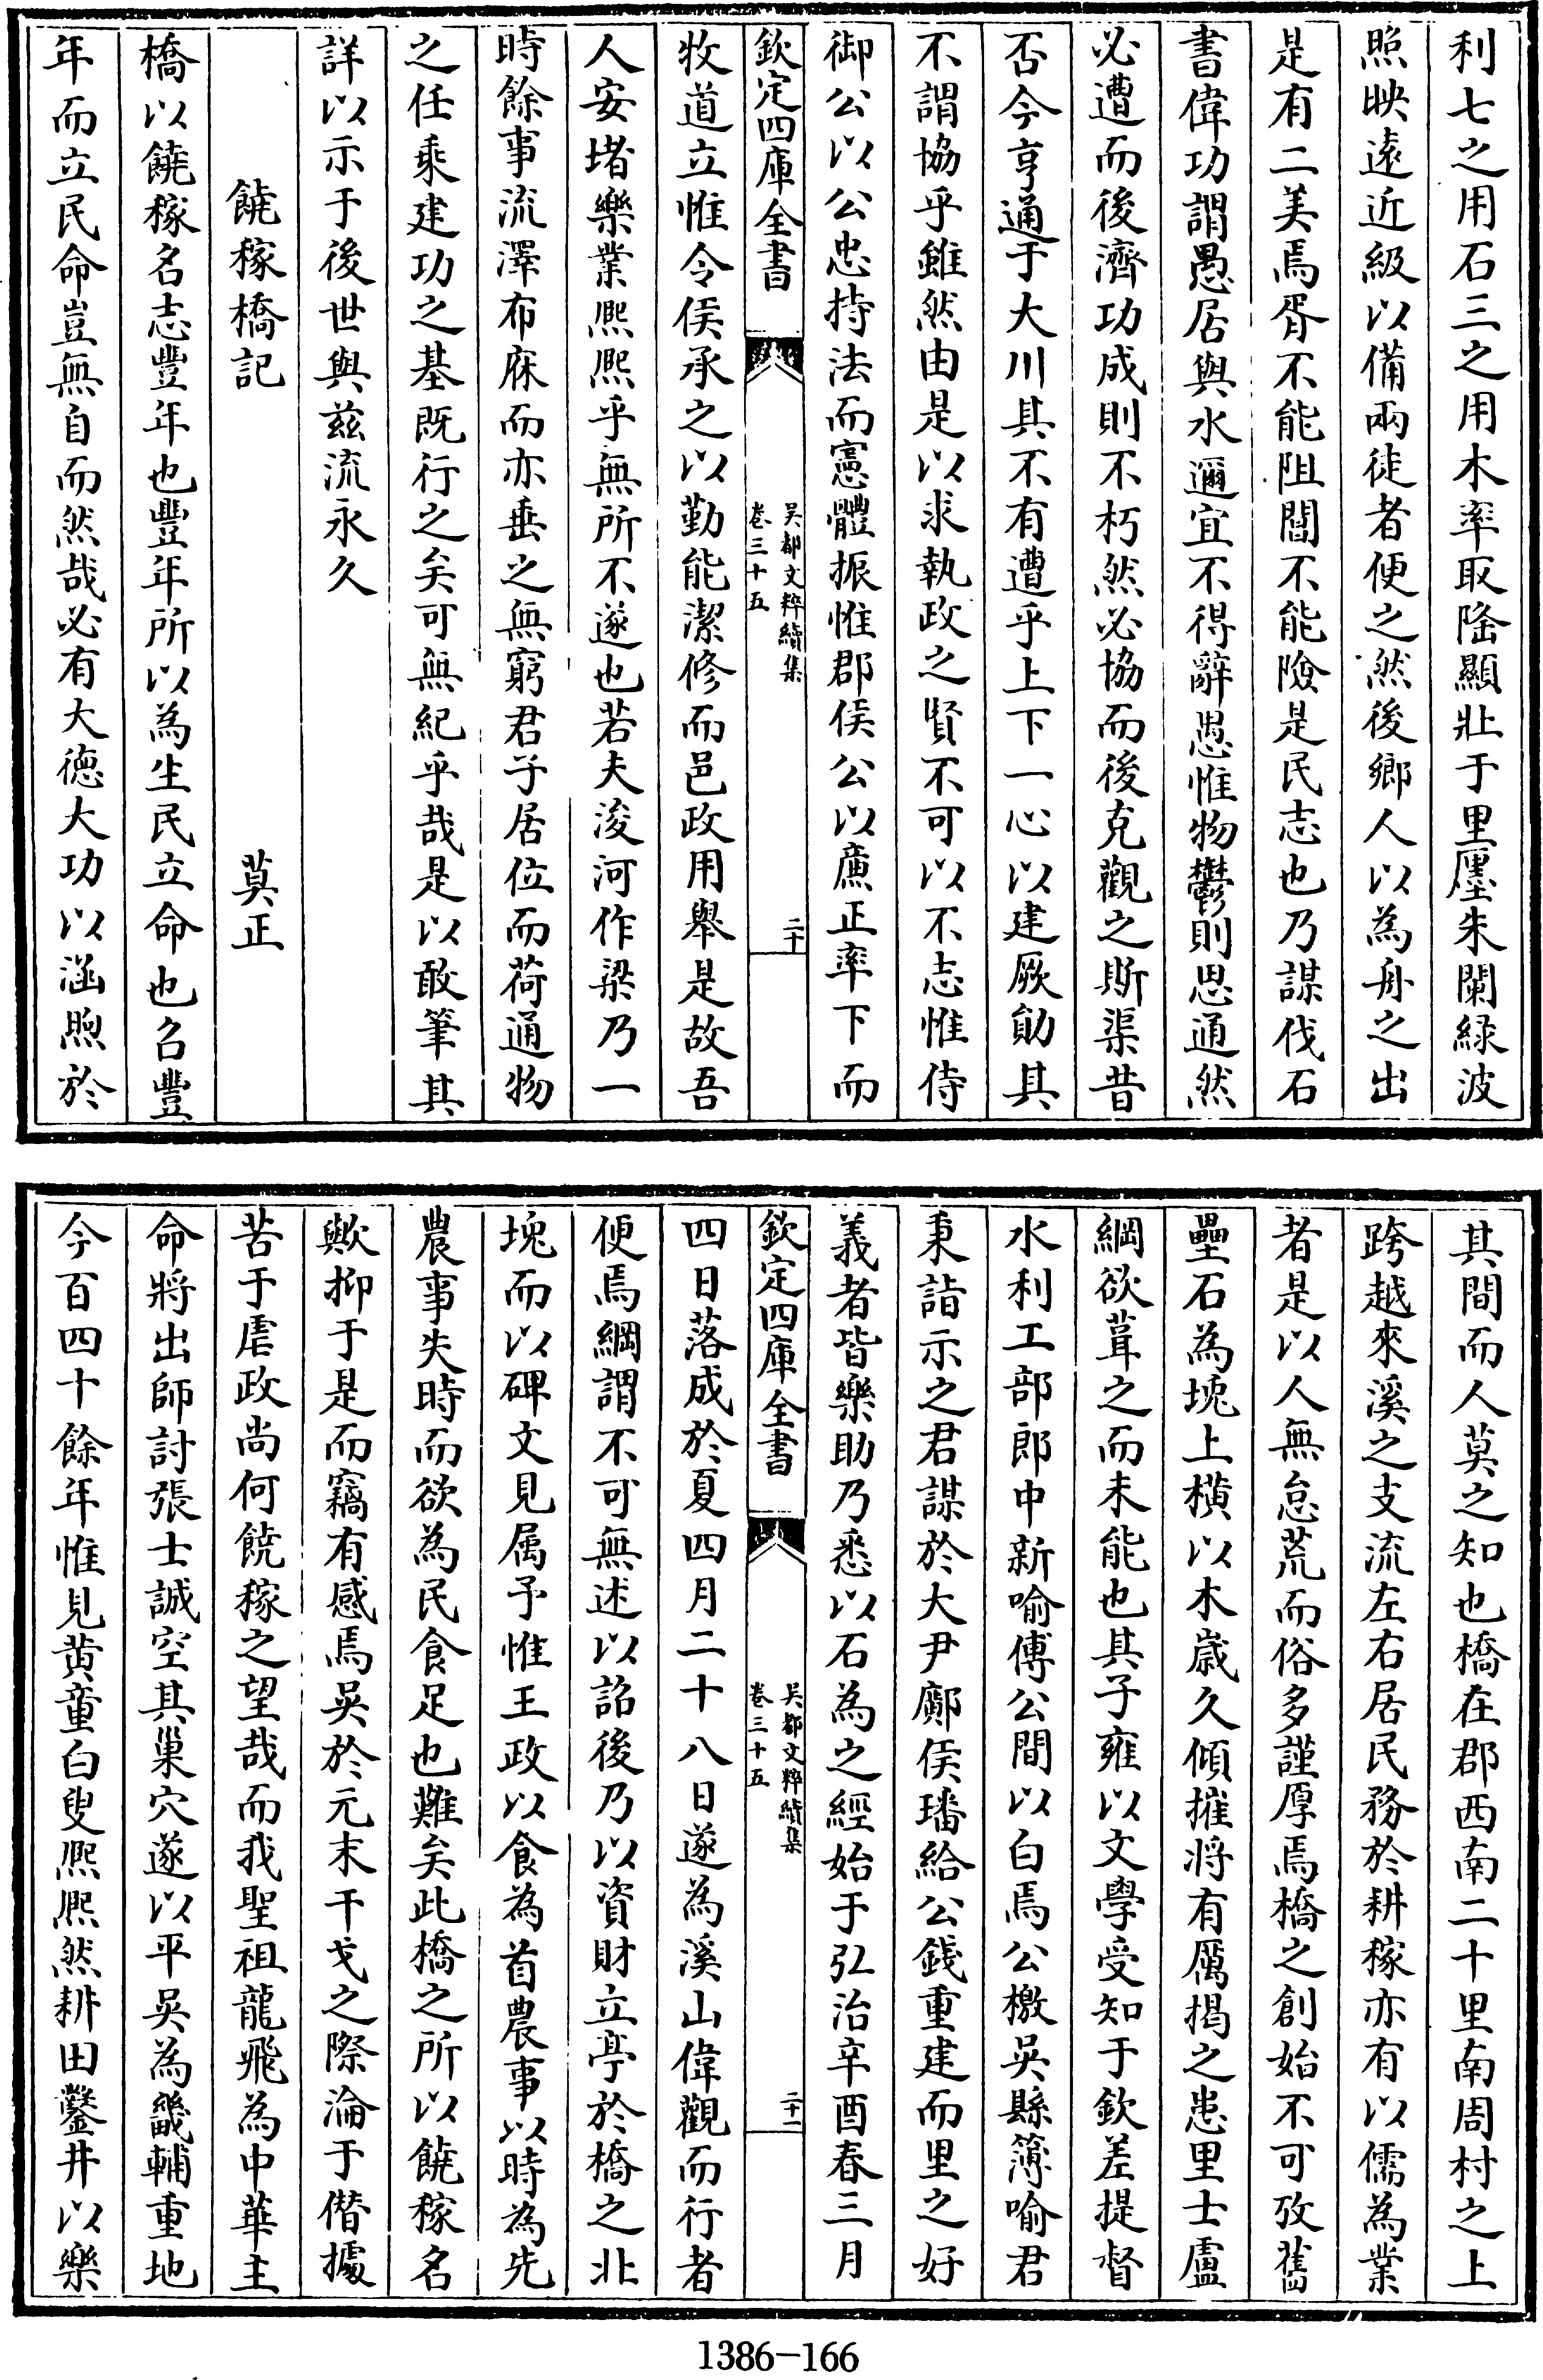 利七之用石三之用木率取隆顯壯于里壥朱闌緑波
照映遠近級以備兩徒者便之然後鄉人以為舟之出
是有二美焉胥不能阻閶不能險是民志也乃謀伐石
書偉功謂愚居與水邇宜不得辭愚惟物鬱則思通然
必遭而後濟功成則不朽然必協而後克觀之斯渠昔
否今亨通于大川其不有遭乎上下一心以建厥勛其
不謂協乎雖然由是以求執政之賢不可以不志惟侍
御公以公忠持法而憲體振惟郡侯公以亷正率下而
欽定四庫全書
吳都文粹續集
卷三十五
二十
牧道立惟令侯承之以勤能潔修而邑政用舉是故吾
人安堵樂業熈熈乎無所不遂也若夫浚河作梁乃一
時餘事流澤布庥而亦垂之無窮君子居位而荷通物
之任乘建功之基既行之矣可無紀乎哉是以敢筆其
詳以示于後世與兹流永久
饒稼橋記
莫正
橋以饒稼名志豐年也豐年所以為生民立命也名豐
年而立民命豈無自而然哉必有大德大功以涵煦於
其間而人莫之知也橋在郡西南二十里南周村之上
跨越來溪之支流左右居民務於耕稼亦有以儒為業
者是以人無怠荒而俗多謹厚焉橋之創始不可攷舊
壘石為堍上横以木歲久傾摧將有厲揭之患里士盧
綱欲葺之而未能也其子雍以文學受知于欽差提督
水利工部郎中新喻傅公間以白焉公檄吳縣簿喻君
秉詣示之君謀於大尹鄺侯璠給公錢重建而里之好
義者皆樂助乃悉以石為之經始于弘治辛酉春三月
欽定四庫全書
吳都文粹續集
卷三十五
二十一
四日落成於夏四月二十八日遂為溪山偉觀而行者
便焉綱謂不可無述以詔後乃以資財立亭於橋之北
堍而以碑文見属予惟王政以食為首農事以時為先
農事失時而欲為民食足也難矣此橋之所以饒稼名
歟抑于是而竊有感焉吳於元末干戈之際淪于僣據
苦于虐政尚何饒稼之望哉而我聖祖龍飛為中華主
命將出師討張士誠空其巢穴遂以平吳為畿輔重地
今百四十餘年惟見黄童白叟熈熈然耕田鑿井以樂
1386-166